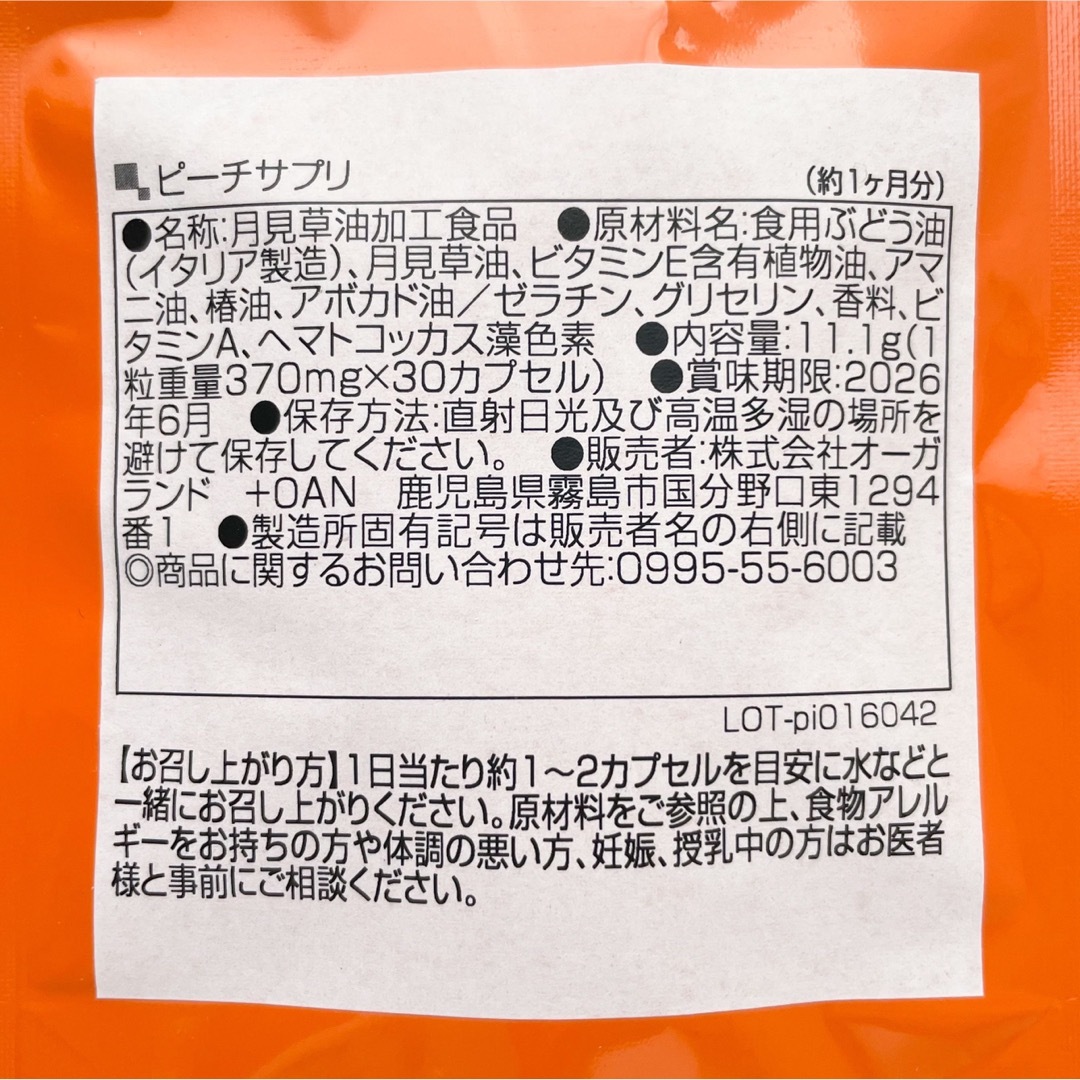 ピーチサプリ (約1ヶ月分)
●名称:月見草油加工食品 ●原材料名:食用ぶどう油
(イタリア製造)、月見草油、ビタミンE含有植物油、アマ
ニ油、椿油、アボカド油／ゼラチン、グリセリン、香料、ビ
タミンA、ヘマトコッカス藻色素 ●内容量:11.1g(1
粒重量370mg×30カプセル) ●賞味期限:2026
年6月 ●保存方法:直射日光及び高温多湿の場所を
避けて保存してください。 ●販売者:株式会社オーガ
ランド +OAN 鹿児島県霧島市国分野口東1294
番1 ●製造所固有記号は販売者名の右側に記載
◎商品に関するお問い合わせ先:0995-55-6003
LOT-pi016042
【お召し上がり方】1日当たり約1～2カプセルを目安に水などと
一緒にお召し上がりください。原材料をご参照の上、食物アレル
ギーをお持ちの方や体調の悪い方、妊娠、授乳中の方はお医者
様と事前にご相談ください。